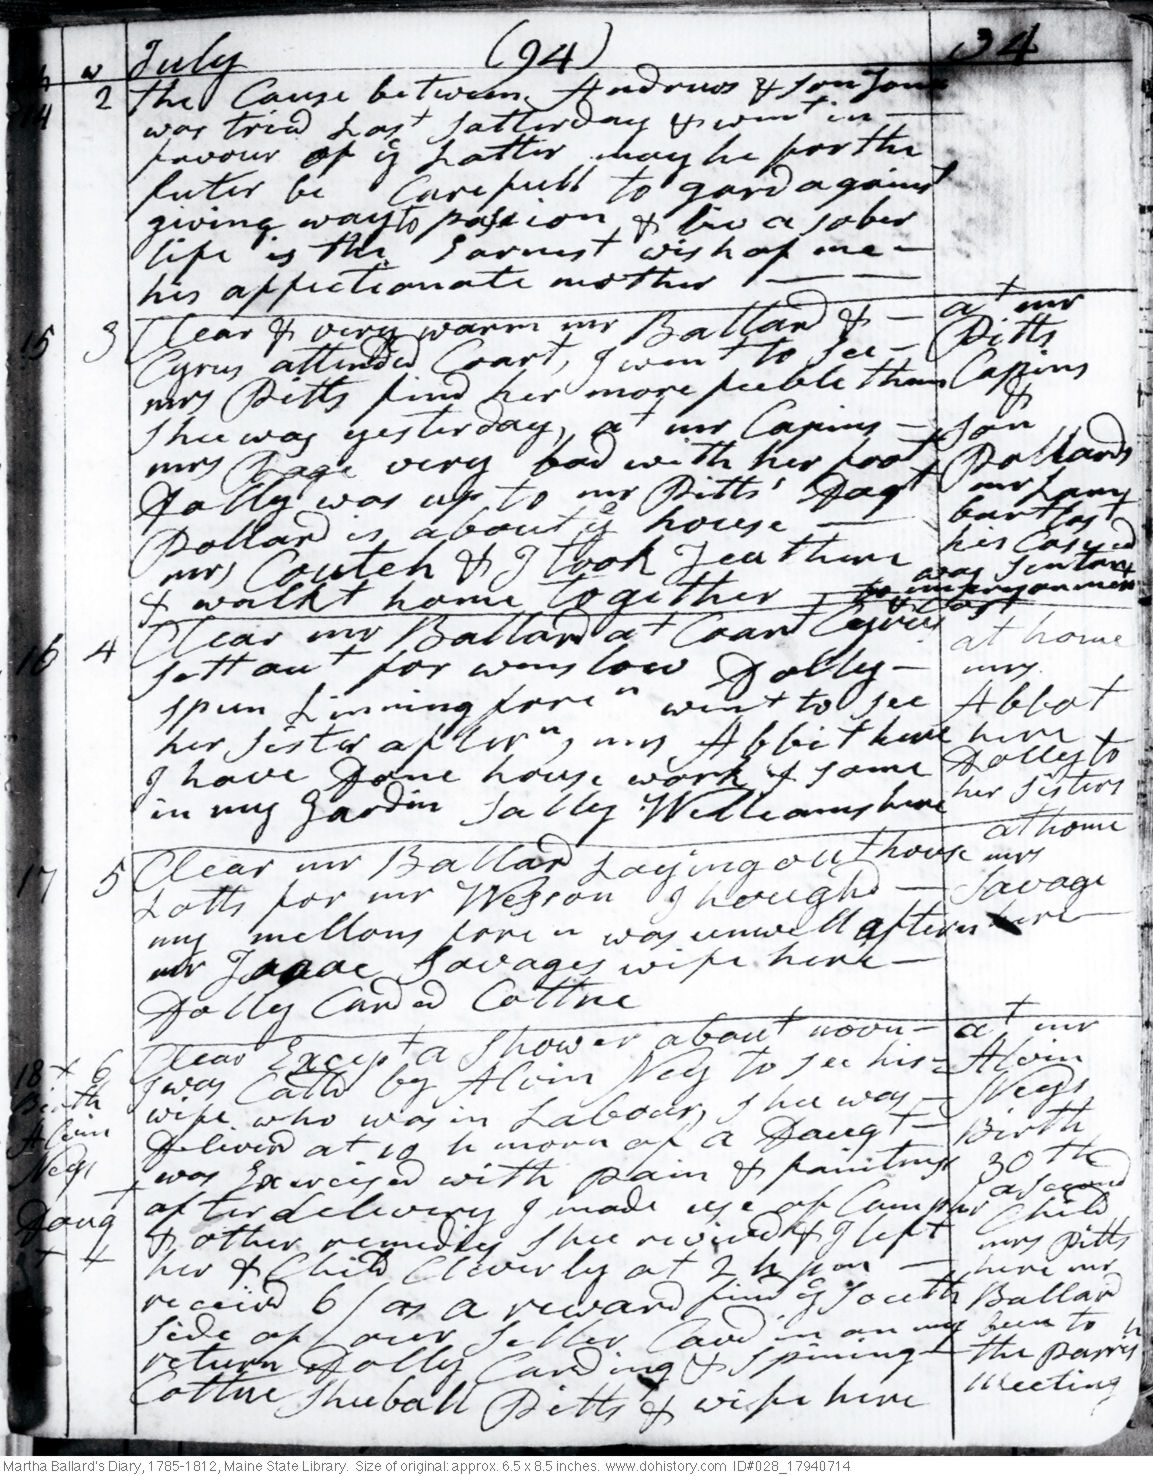 w July (94) 34
14 2 the Cause between Andrews & Son Jona
was tried Last Satterday & went in
favour of ye Latter may he for the
futer be Carefull to gard against
giving way to pasion & liv a sober
life is the Earnest wish of me
his affectionate mother
15 3 Clear & very warm mr Ballard &
Cyrus attended Coart, I went to see
mrs Pitts find her more feeble than
shee was yesterday, at mr Capins
mrs Page very bad with her foot
Dolly was up to mr Pitts' Dagt
Pollard is about ye house
mrs Coutch & I took Tea there
& walkt home together
at mr
Pitts
Capins
&
Son
Pollards
mr
his Case
was
to impersonment
16 4 Clear mr Ballard at Coart Cyrus
sett out for winslow Dolly
spun Linning foren went to see
her sister aftern, mrs Abbit here
I have Done house work & some
in my Gardin Sally Williams here
at home
mrs
Abbot
here
Dolly to
her sisters
17 5 Clear mr Ballard Laying out house
Lotts for mr Wesson I houghd
my mellons foren was unwell aftern
mr Isaac Savages wife here
Dolly Carded Cottne
at home
mrs
Savage
here
18 6 Clear Except a Shower about noon
I was Calld by Alvin Neys to see his
wife who was in Labour, shee was
Deliverd at 10 h morn of a Daugt
was Exercised with pain & faintings
after delivery I made use of Camphr
& other remedies shee revived & I left
her & Child Cleverly at 2 h pm
receivd 6/ as a reward find ye South
side of our Seller Cavd in on my
return Dolly Carding & Spining
Cottne Shuball Pitts & wife here
Birth
Alvin
Neys
Daugt
at mr
Alvin
Neys
Birth
30th
a second
Child
mrs Pitts
here mr
Ballard
been to
the parrish
meeting
Martha Ballard's Diary, 1785-1812, Maine State Library. Size of original: approx. 6.5 x 8.5 inches. www.dohistory.com ID#028_17940714